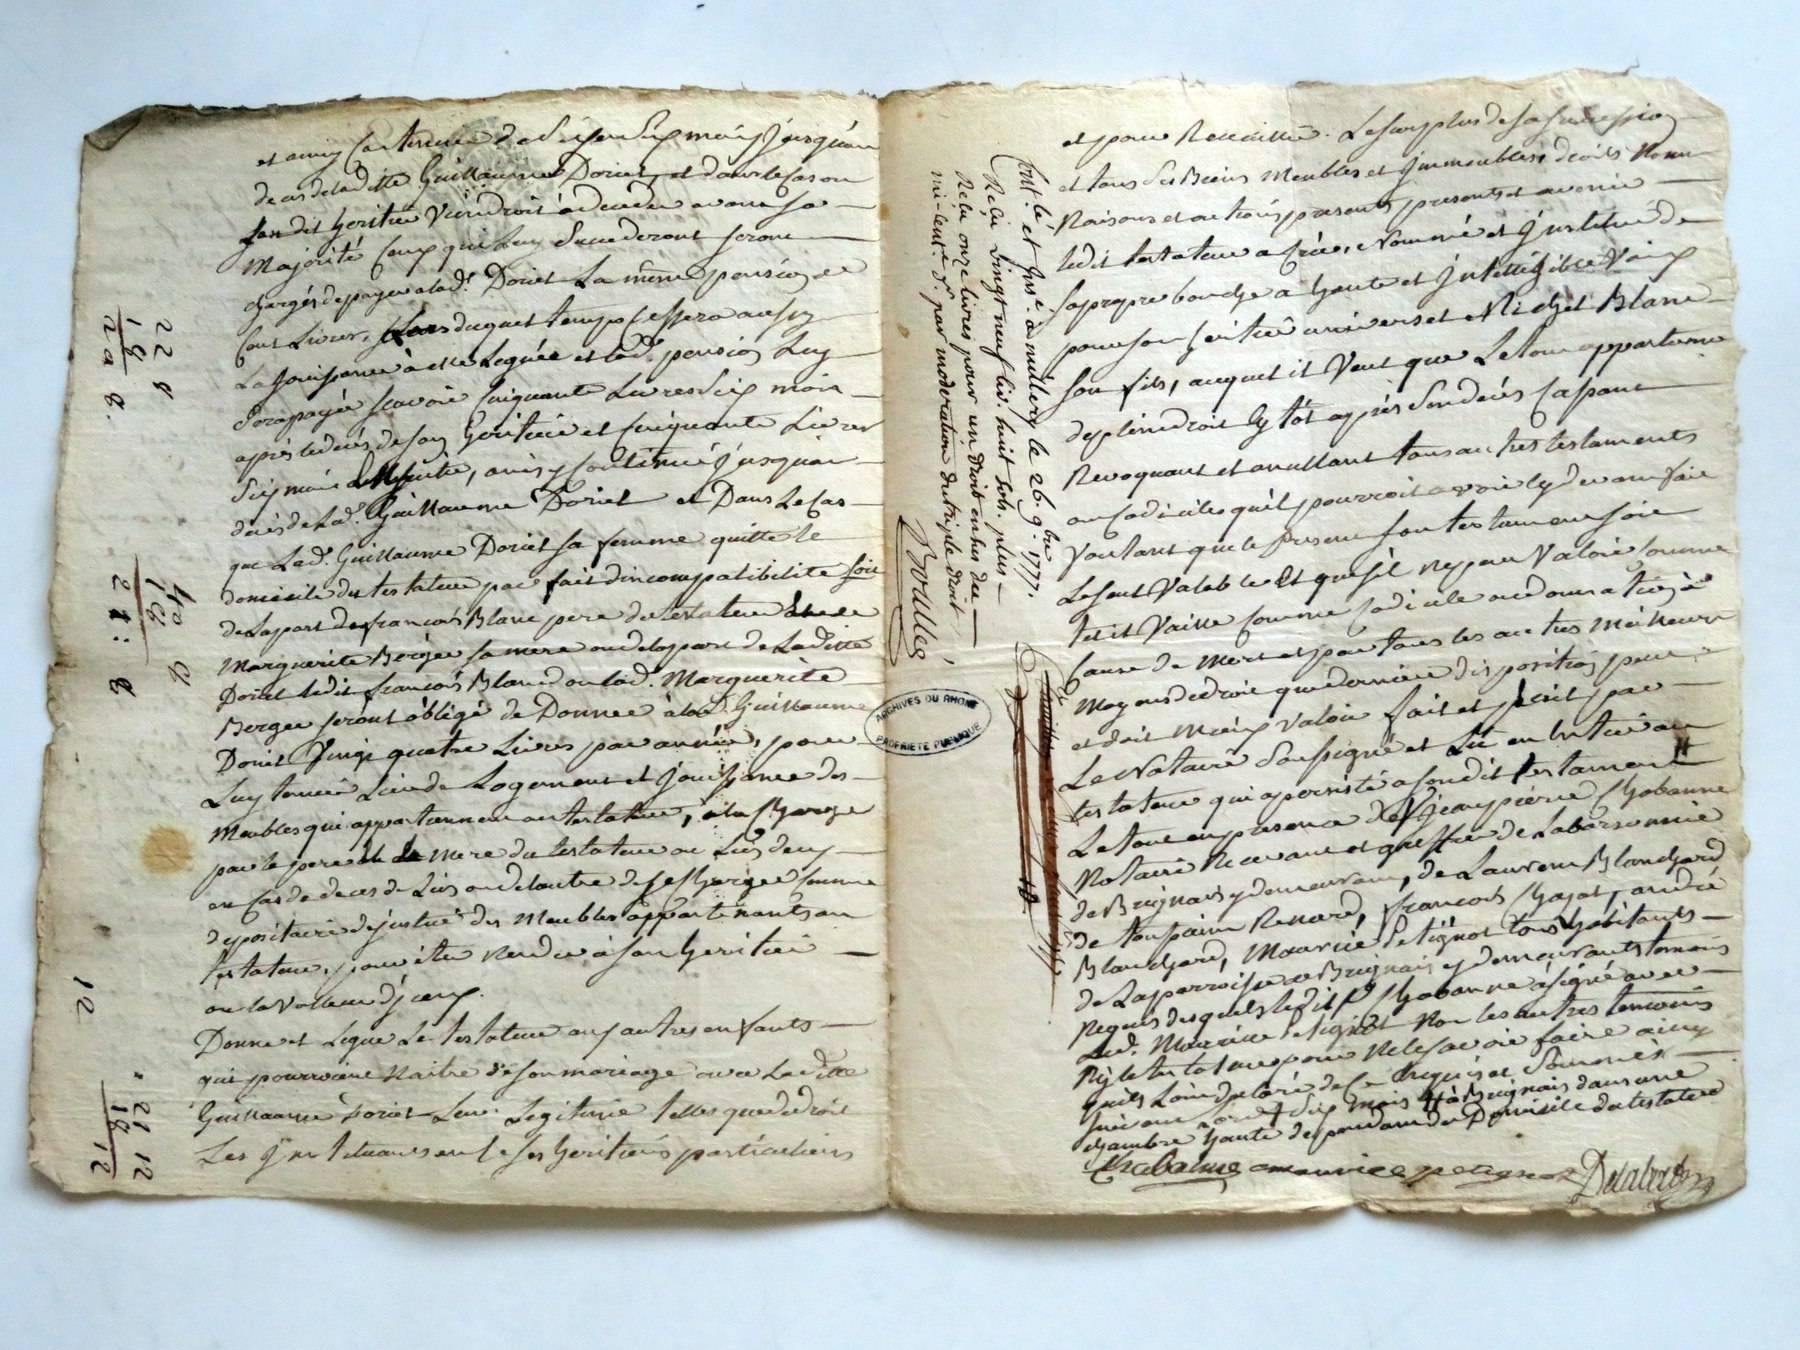 et ainsy continuer de six en six mois jusqu'au
deces de laditte Guillaume Doriet, et dans le cas ou
son dit heritier viendroit à deceder avant sa
majorité ceux qui luy succederont seront
chargés de payer a lad.e Doriet la même pension de
cent livres, duquel temps cessera aussy
la jouissance à elle leguée et lad.e pension luy
sera payée scavoir cinquante livres six mois
après le decés de son heritier et cinquante livres
six mois ensuite, ainsy continué jusqu'au
décés de lad.e Guillaume Doriet et dans le cas
que lad.e Guillaume Doriet sa femme quitte le
domicile du testateur par fait d'incompatibilité soit
de la part de francois Blanc pere du testateur
Marguerite Berger sa mere ou de la part de laditte
Doriet ledit francois Blanc ou lad.e Marguerite
Berger seront obligé de donner à lad.e Guillaume
Doriet vingt quatre livres par année, pour
luy tenir lieu de logement et jouissance des
meubles qui appartiennent au testateur, à la charge
par le pere et la mere du testateur ou l'un d'eux
en cas de deces de l'un ou de l'autre de se charger comme
depositaire de justice des meubles appartenants au
testateur, pour être rendu à son heritier
ou la valleur d'iceux.
Donne et legue le testateur aux autres enfants
qui pourroient naitre de son mariage avec laditte
Guillaume Doriet leur legitime telles que de droit
les instituant en ce ses heritiers particuliers
22 8
18
2 a 8.
40 8
18
22: 8
12
" 21 12
18 12
Cont.lé et Ins.é à millery le 26. 9.bre 1777.
Reçu vingt neuf liv. huit sols. plus
Relu onze livres pour un droit en sus du
mi-cent.e d.r par moderation du triple droit
Boullé
ARCHIVES DU RHONE
PROPRIETE PUBLIQUE
et pour Le surplus de sa succession
et tous ses biens meubles et immeubles, droits noms
raisons et actions présents, presents et avenir
ledit testateur a créé, nommé et institué de
sa propre bouche a haute et intelligible voix
pour son heritier universel Michel Blanc
son fils, auquel il veut que le tout appartienne
de plein droit sytôt après son decés cassant
revoquant et anullant tous autres testaments
ou codiciles qu'il pourroit avoir cy devant fait
voulant que le present son testament soit
le seul valable et que s'il ne peut valoir comme
tel il vaille comme codicile ou donation à
cause de mort et par tous les autres meilleurs
moyens de droit que derniere disposition peut
et doit mieux valoir fait et recité par
le notaire soussigné et lû en entier au
testateur qui a persisté a son dit testament
le tout en presence de S.r jean pierre Chabanne
notaire recevant et greffier de la baronnie
de Brignais y demeurant, de Laurent Blanchard
de toussaint Renard, francois Chazot, andré
Blanchard, Maurice Petignot tous habitants
de la parroisse de Brignais y demeurants temoins
requis desquels ledit S.r Chabanne a signé avec
led. Maurice Petignot non les autres temoins
ny le testateur pour ne le scavoir faire ainsy
qu'ils l'ont declaré de ce enquis et sommés
à Brignais dans une
chambre haute dependante du Domicile du testateur
Chabanne maurice petignot Delabert